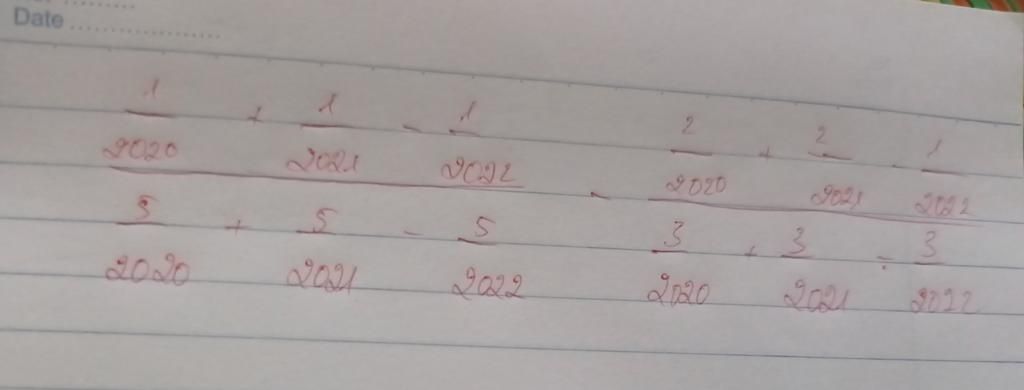 Date ..................
1/2020 + 1/2021 - 1/2022 - 2/2020 + 2/2021 - 1/2022
5/2020 + 5/2021 - 5/2022 3/2020 + 3/2021 - 3/2022